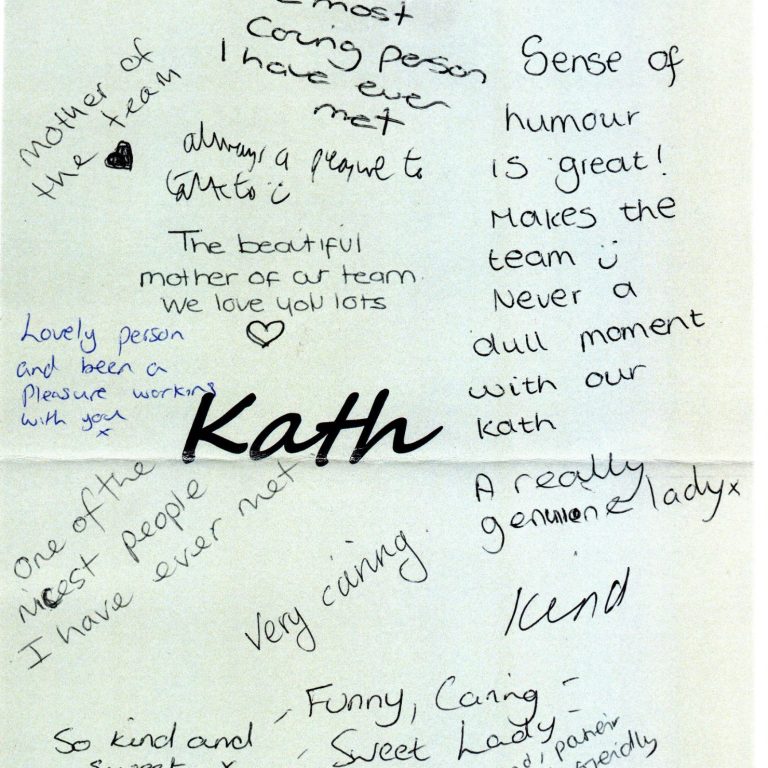 most
Caring person
I have ever
met
Mother of
the team
always a pleasure to
talk to
The beautiful
mother of our team.
We love you lots
Sense of
humour
is great!
Makes the
team
Never a
dull moment
with our
Kath
Lovely person
and been a
Pleasure working
with you
x
Kath
A really
genuine lady x
One of the
nicest people
I have ever met
Very caring.
Kind
- Funny, Caring -
- Sweet Lady
So kind and
Sweet x
friendly